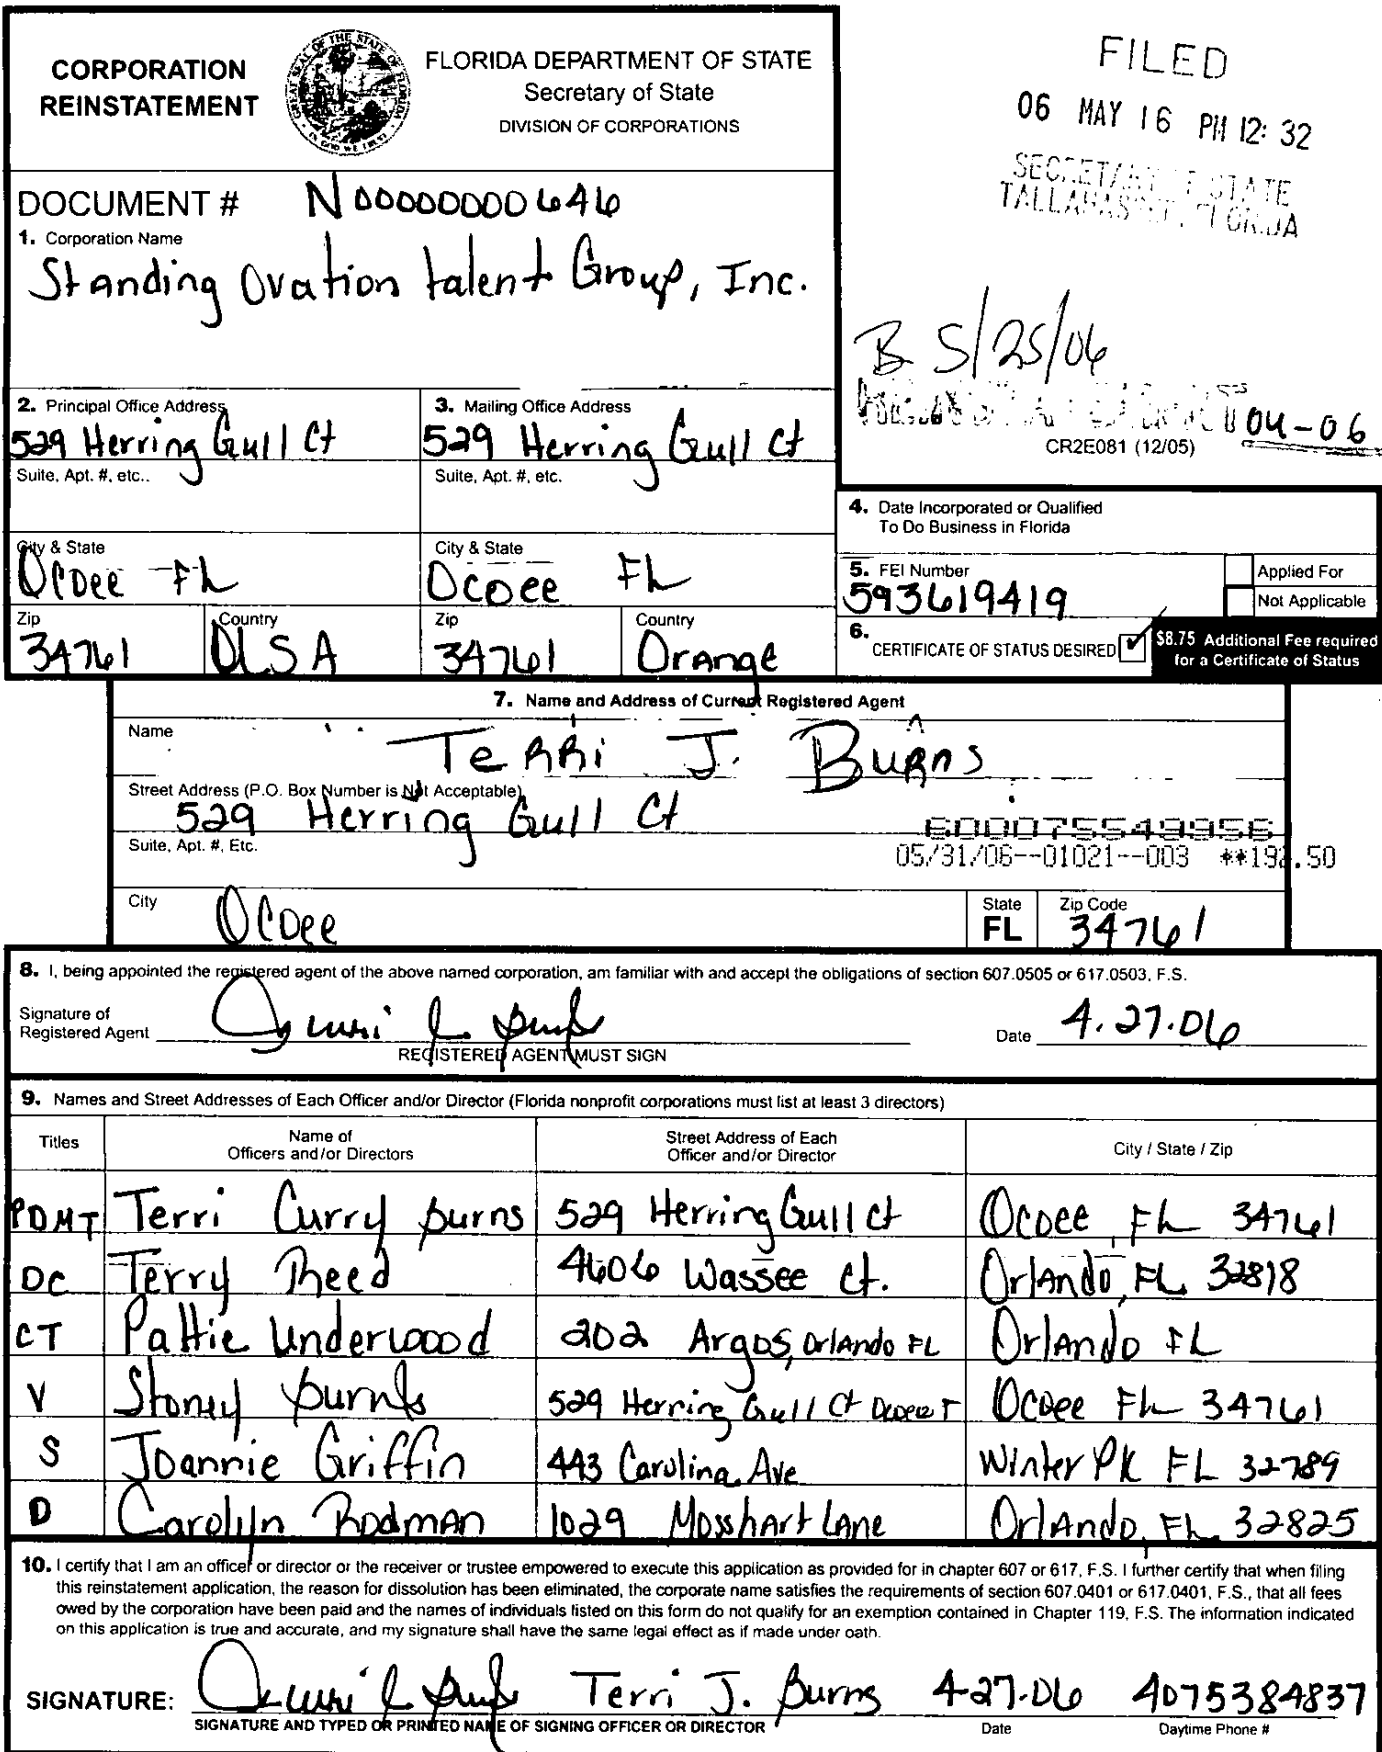 CORPORATION
REINSTATEMENT
FLORIDA DEPARTMENT OF STATE
Secretary of State
DIVISION OF CORPORATIONS
FILED
06 MAY 16 PM 12:32
SECRETARY OF STATE
TALLAHASSEE, FLORIDA
DOCUMENT # N00000000646
1. Corporation Name
Standing Ovation talent Group, Inc.
B 5/25/06
04-06
CR2E081 (12/05)
2. Principal Office Address
529 Herring Gull Ct
Suite, Apt. #, etc..
City & State
Ocoee FL
Zip
34761
Country
USA
3. Mailing Office Address
529 Herring Gull Ct
Suite, Apt. #, etc.
City & State
Ocoee FL
Zip
34761
Country
Orange
4. Date Incorporated or Qualified
To Do Business in Florida
5. FEI Number
593619419
Applied For
Not Applicable
6. CERTIFICATE OF STATUS DESIRED
$8.75 Additional Fee required
for a Certificate of Status
7. Name and Address of Current Registered Agent
Name
Terri J. Burns
Street Address (P.O. Box Number is Not Acceptable)
529 Herring Gull Ct
600075549956
Suite, Apt. #, Etc.
05/31/06--01021--003 **192.50
City
Ocoee
State
FL
Zip Code
34761
8. I, being appointed the registered agent of the above named corporation, am familiar with and accept the obligations of section 607.0505 or 617.0503, F.S.
Signature of
Registered Agent
Date 4.27.06
REGISTERED AGENT MUST SIGN
9. Names and Street Addresses of Each Officer and/or Director (Florida nonprofit corporations must list at least 3 directors)
Titles
Name of
Officers and/or Directors
Street Address of Each
Officer and/or Director
City / State / Zip
PDMT Terri Curry Burns 529 Herring Gull Ct Ocoee, FL 34761
DC Terry Reed 4606 Wassee Ct. Orlando, FL 32818
CT Pattie Underwood 202 Argos, Orlando FL Orlando FL
V Stoney Burns 529 Herring Gull Ct Ocoee FL 34761
S Joannie Griffin 443 Carolina Ave Winter Pk FL 32789
D Carolyn Rodman 1029 Mosshart Lane Orlando, FL 32825
10. I certify that I am an officer or director or the receiver or trustee empowered to execute this application as provided for in chapter 607 or 617, F.S. I further certify that when filing
this reinstatement application, the reason for dissolution has been eliminated, the corporate name satisfies the requirements of section 607.0401 or 617.0401, F.S., that all fees
owed by the corporation have been paid and the names of individuals listed on this form do not qualify for an exemption contained in Chapter 119, F.S. The information indicated
on this application is true and accurate, and my signature shall have the same legal effect as if made under oath.
SIGNATURE: Terri J. Burns 4-27-06 4075384837
SIGNATURE AND TYPED OR PRINTED NAME OF SIGNING OFFICER OR DIRECTOR
Date
Daytime Phone #